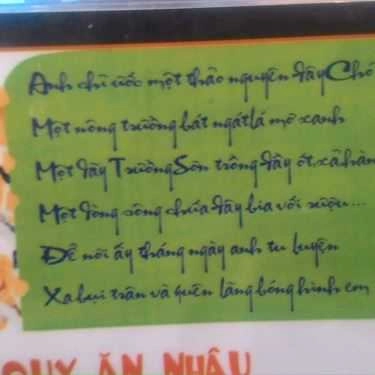 Anh chỉ ước một thảo nguyên đầy Chó
Một nông trường bát ngát lá mơ xanh
Một dãy Trường Sơn trồng đầy ớt, xả, hàn
Một dòng sông chứa đầy bia với rượu...
Để nơi ấy tháng ngày anh tu luyện
Xa bụi trần và quên lãng bóng hình em
QUY ĂN NHẬU